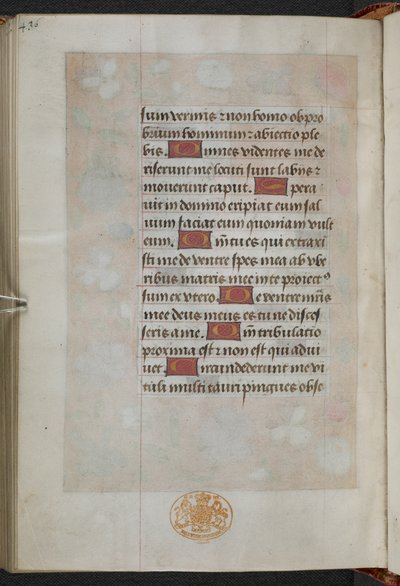 436
sum vermis ⁊ non homo obpro
brium hominum ⁊ abiectio ple
bis. Omnes videntes me de
riserunt me locuti sunt labijs ⁊
moverunt caput. Spera
uit in domino eripiat eum sal
uum faciat eum quoniam vult
eum. Qm̄ tu es qui extraxi
sti me de ventre spes mea ab vbe
ribus matris mee in te proiectꝰ
sum ex vtero. De ventre mr̄is
mee deus meus es tu ne disces
seris a me. Qm̄ tribulatio
proxima est ⁊ non est qui adiu
uet. Circumdederunt me vi
tuli multi tauri pingues obse